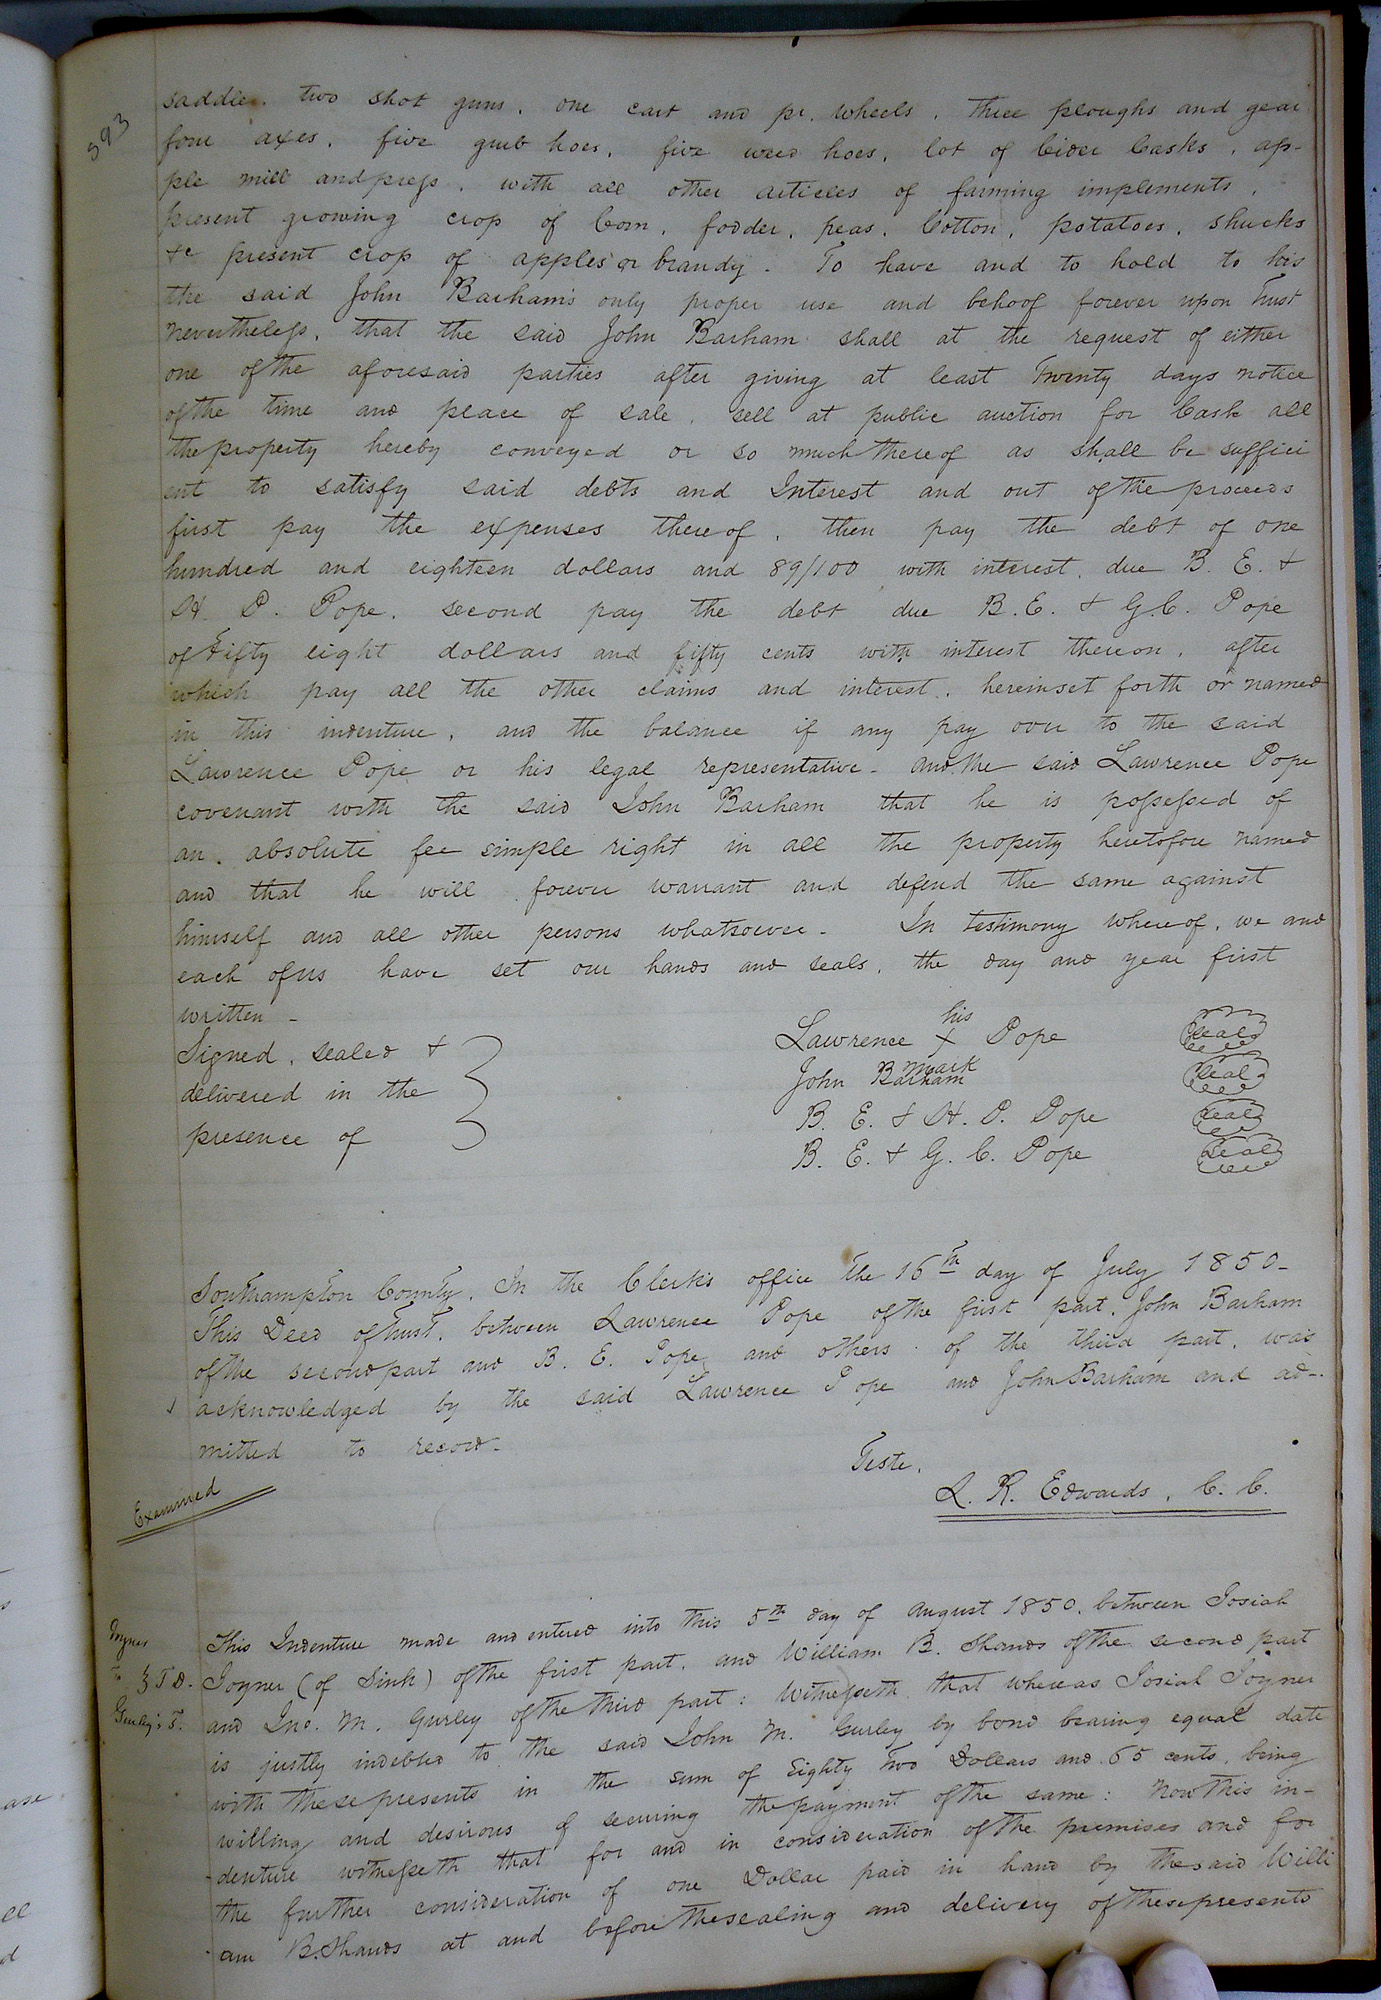 593
saddle, two shot guns, one cart and pr. wheels, three ploughs and gear
four axes, five grub hoes, five weed hoes, lot of Cider Casks, ap-
ple mill and press, with all other articles of farming implements,
present growing crop of Corn, fodder, peas, Cotton, potatoes, shucks
&c present crop of apples or brandy. To have and to hold to his
the said John Barham's only proper use and behoof forever upon Trust
nevertheless, that the said John Barham shall at the request of either
one of the aforesaid parties after giving at least Twenty days notice
of the time and place of sale, sell at public auction for Cash all
the property hereby conveyed or so much thereof as shall be suffici
ent to satisfy said debts and Interest and out of the proceeds
first pay the expenses thereof, then pay the debt of one
hundred and eighteen dollars and 89/100 with interest, due B. E. &
H. P. Pope, second pay the debt due B. E. & G. C. Pope
of Fifty eight dollars and fifty cents with interest thereon, after
which pay all the other claims and interest, herein set forth or named
in this indenture, and the balance if any pay over to the said
Lawrence Pope or his legal representative - and the said Lawrence Pope
covenant with the said John Barham that he is possessed of
an absolute fee simple right in all the property heretofore named
and that he will forever warrant and defend the same against
himself and all other persons whatsoever - In testimony whereof, we and
each of us have set our hands and seals, the day and year first
written -
Signed, sealed &
delivered in the
presence of
his
Lawrence X Pope seal
mark
John Barham seal
B. E. & H. P. Pope seal
B. E. & G. C. Pope seal
Southampton County, In the Clerk's office the 16th day of July 1850-
This Deed of trust, between Lawrence Pope of the first part, John Barham
of the second part and B. E. Pope and others of the third part, was
acknowledged by the said Lawrence Pope and John Barham and ad-
mitted to record-
Teste,
L. R. Edwards, C. C.
Examined
Joyner
to } T D.
Gurley's T.
This Indenture made and entered into this 5th day of August 1850, between Josiah
Joyner (of Sink) of the first part, and William B. Shands of the second part
and Jno. M. Gurley of the third part: Witnesseth that whereas Josiah Joyner
is justly indebted to the said John M. Gurley by bond bearing equal date
with these presents in the sum of Eighty Two Dollars and 65 cents, being
willing and desirous of securing the payment of the same: Now this in-
denture witnesseth that for and in consideration of the premises and for
the further consideration of one Dollar paid in hand by the said Willi
am B. Shands at and before the sealing and delivery of these presents